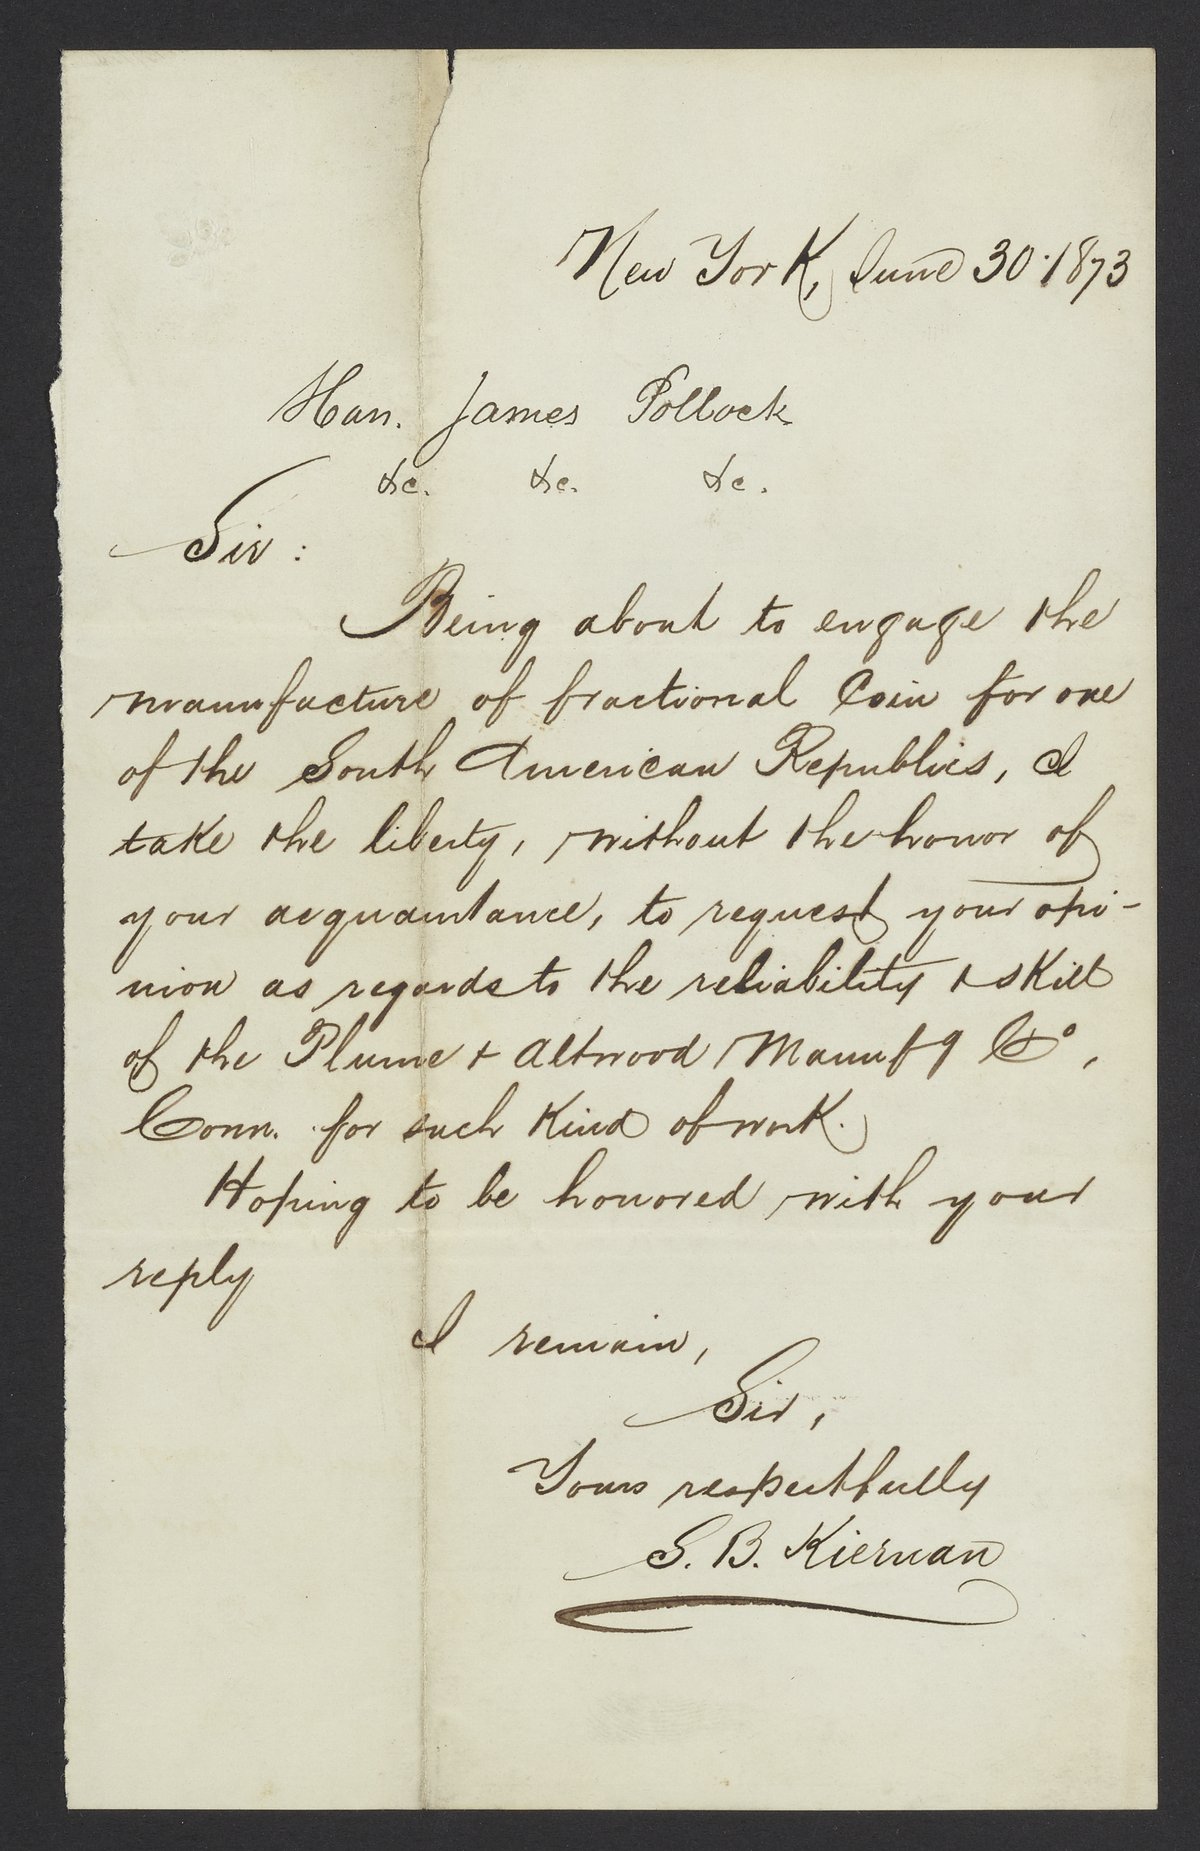 New York, June 30. 1873
Hon. James Pollock
&c. &c. &c.
Sir:
Being about to engage the
manufacture of fractional Coin for one
of the South American Republics, I
take the liberty, without the honor of
your acquaintance, to request your opi-
nion as regards to the reliability & skill
of the Plume & Attwood Manufg Co,
Conn. for such kind of work.
Hoping to be honored with your
reply
I remain,
Sir,
Yours respectfully
S. B. Kiernan